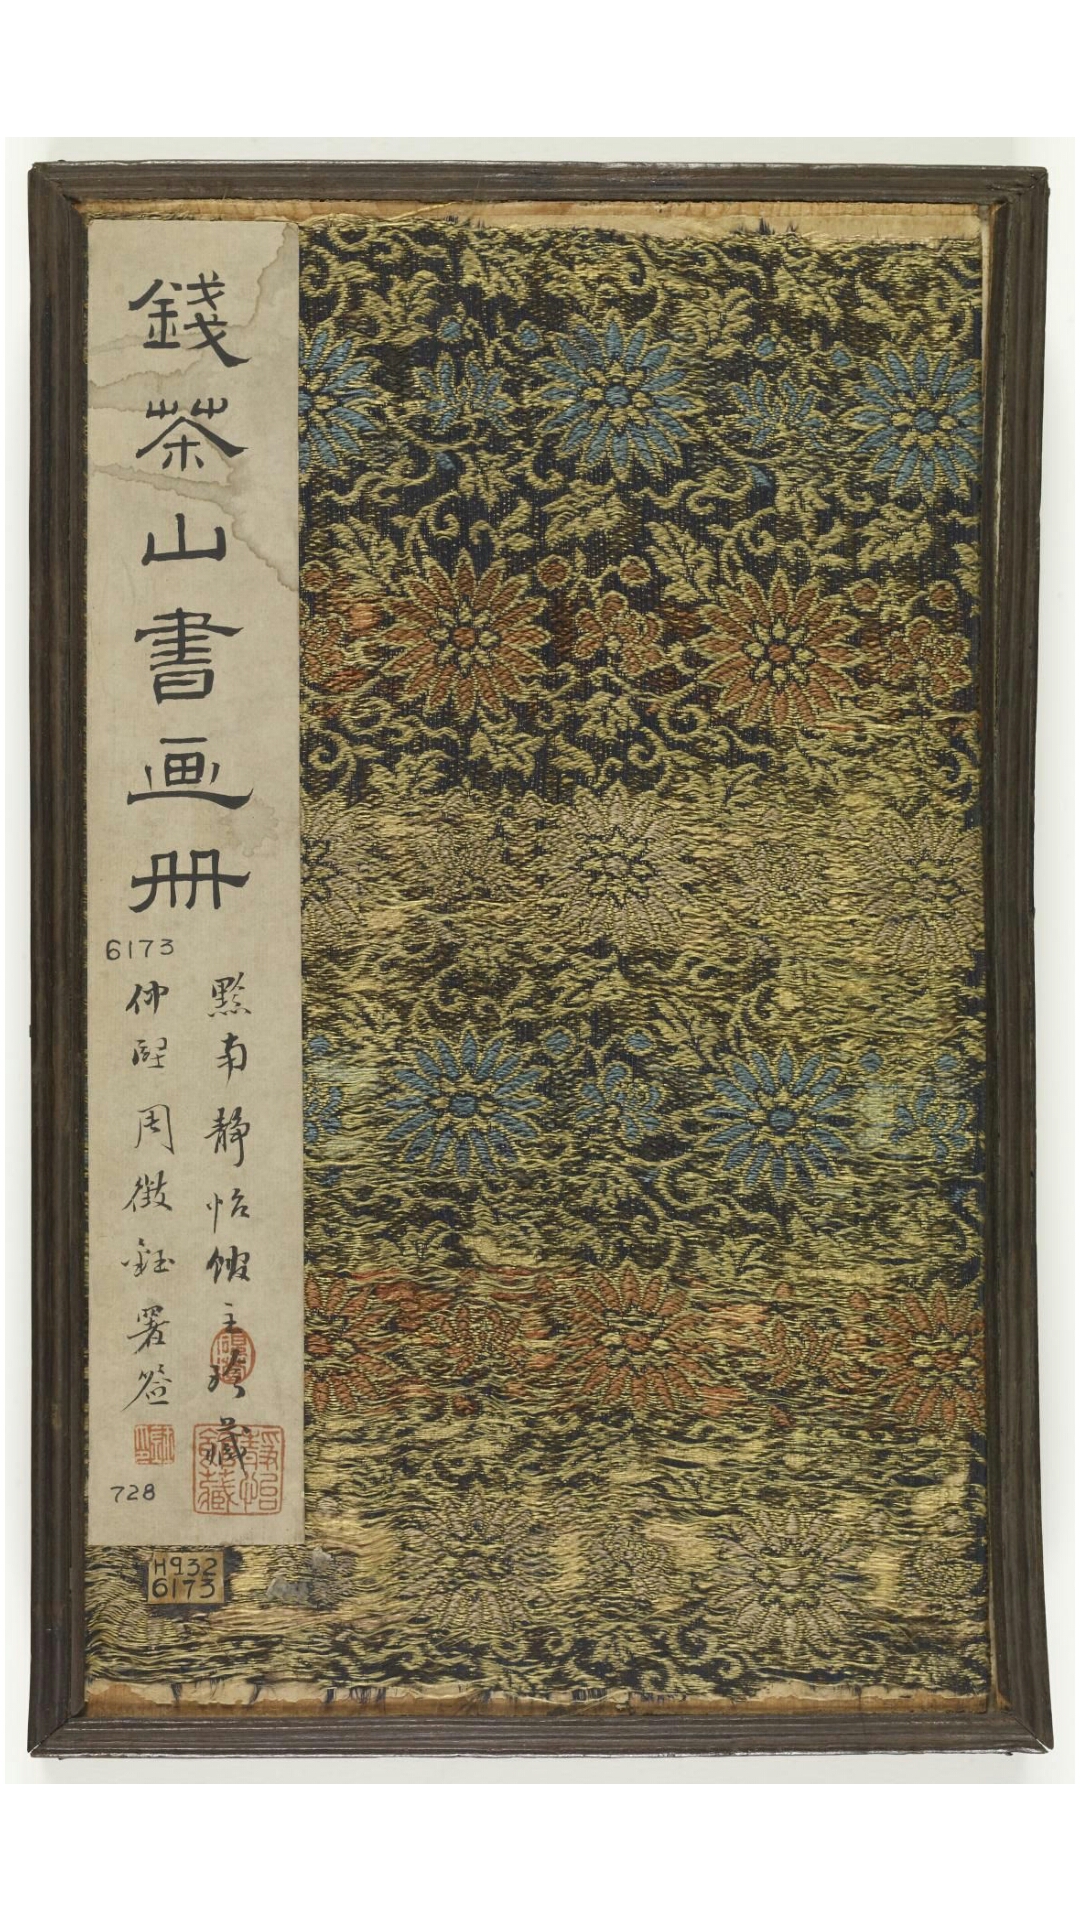 錢茶山書画册
6173
黔南靜怡館主珍藏
仲熙周徵鈺署签
728
H932
6173
靜怡
藏